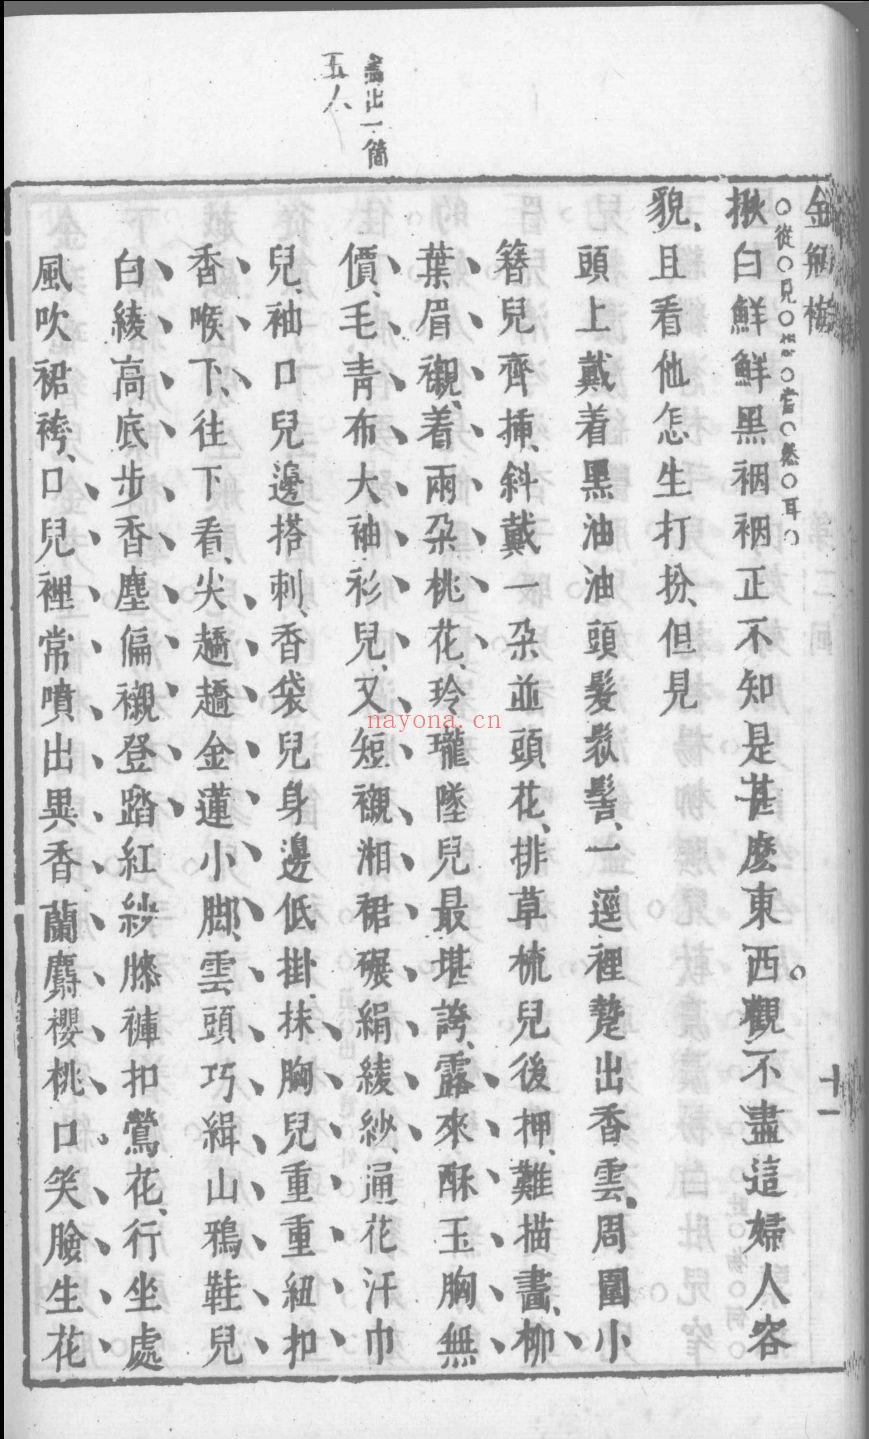 畫出一箇
五人
金瓶梅
從○見○慣○嘗○然○耳○
揪白鮮鮮黑裀裀正不知是甚麼東西。觀不盡這婦人容
貌、且看他怎生打扮、但見
頭上戴着黑油油頭髮䯼髻、一逕裡蹔出香雲、周圍小
簪兒齊揷、斜戴一朶並頭花、排草梳兒後押、難描畫、柳
葉眉襯着兩朶桃花、玲瓏墜兒最堪誇、露來酥玉胸無
價、毛青布大袖衫兒、又短襯湘裙碾絹綾紗、通花汗巾
兒、袖口兒邊搭剌、香袋兒身邊低掛、抹胸兒重重紐扣
香喉下、往下看、尖趫趫金蓮小脚、雲頭巧緝山鴉鞋兒
白綾高底步香塵偏襯登踏紅紗膝褲扣鶯花、行坐處
風吹裙袴、口兒裡常噴出異香蘭麝櫻桃口笑臉生花
十一
nayona.cn